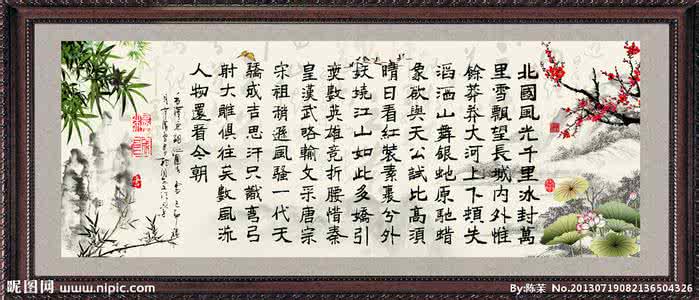 北國風光千里冰封萬
里雪飄望長城内外惟
餘莽莽大河上下頓失
滔滔山舞銀蛇原馳蜡
象欲與天公試比高須
晴日看紅裝素裹分外
妖嬈江山如此多嬌引
無數英雄竞折腰惜秦
皇漢武略輸文采唐宗
宋祖稍遜風騷一代天
驕成吉思汗只識彎弓
射大雕俱往矣數風流
人物還看今朝
昵图网
www.nipic.com
By:陈茉 No.20130719082136504326